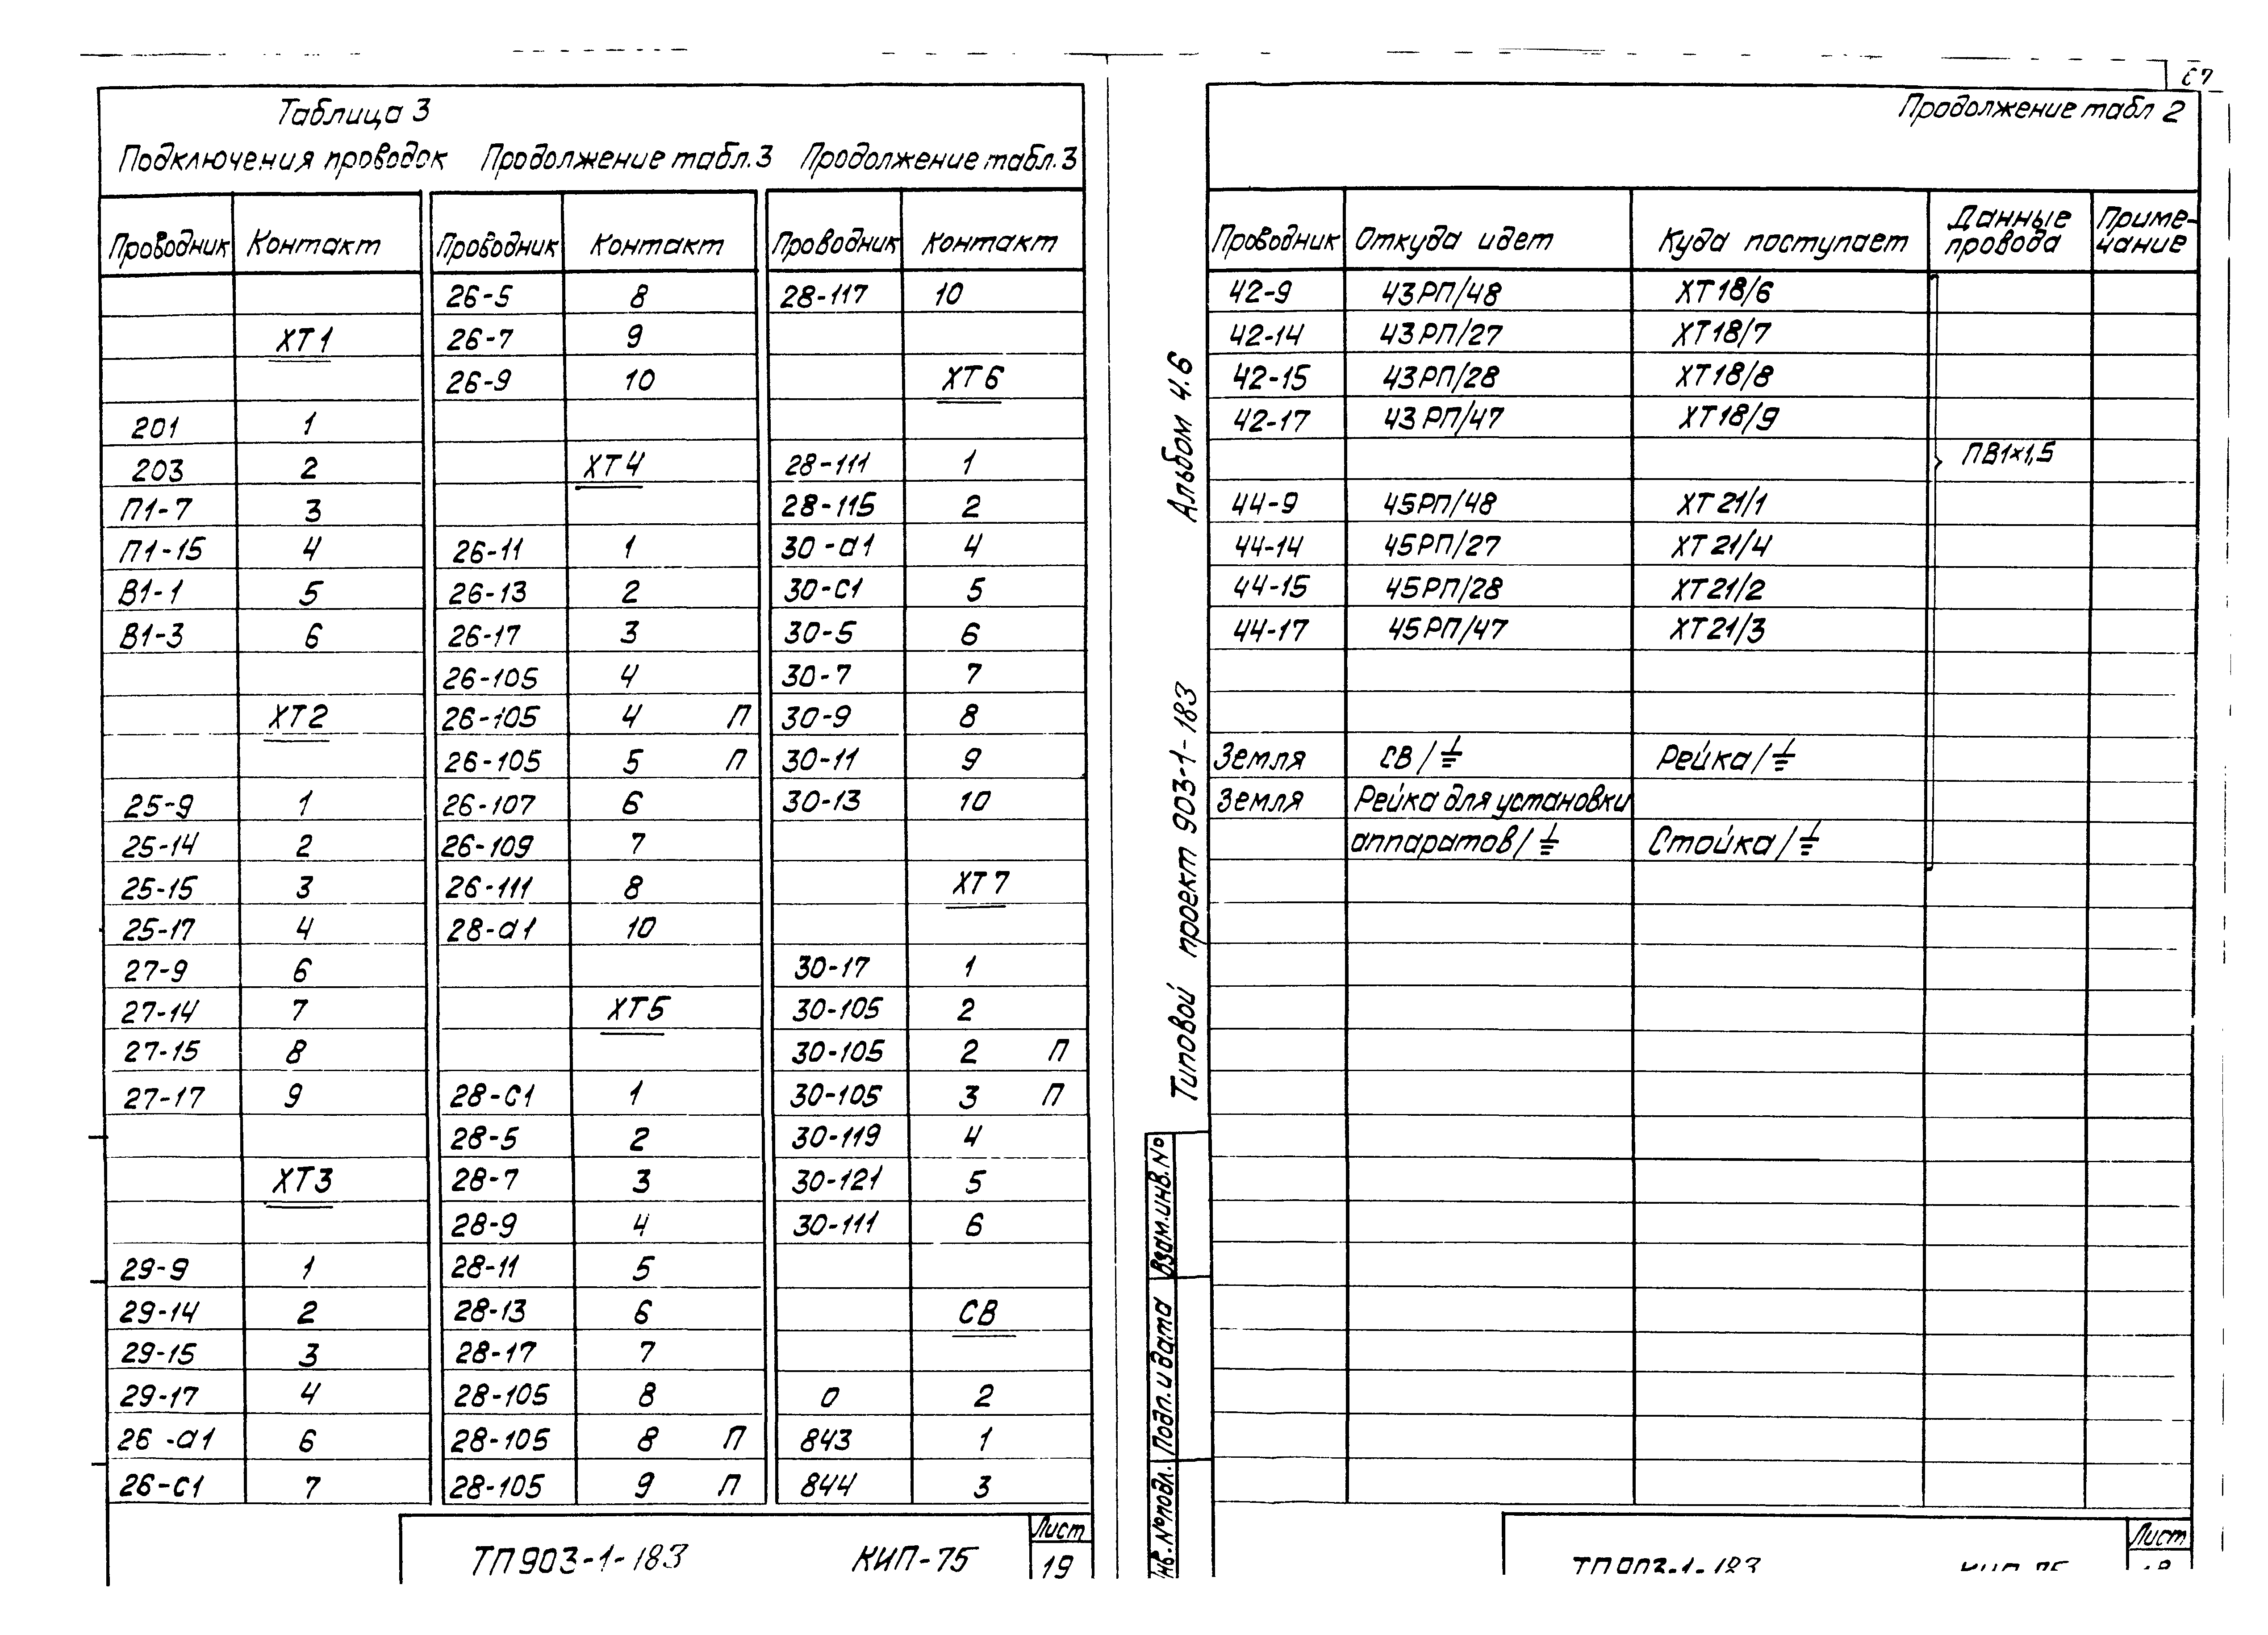 Таблица 3
Подключения проводок Продолжение табл.3 Продолжение табл.3
Проводник Контакт Проводник Контакт Проводник Контакт
26-5 8 28-117 10
ХТ1 26-7 9
26-9 10 ХТ6
201 1
203 2 ХТ4 28-111 1
П1-7 3 28-115 2
П1-15 4 26-11 1 30-а1 4
В1-1 5 26-13 2 30-с1 5
В1-3 6 26-17 3 30-5 6
26-105 4 30-7 7
ХТ2 26-105 4 П 30-9 8
26-105 5 П 30-11 9
25-9 1 26-107 6 30-13 10
25-14 2 26-109 7
25-15 3 26-111 8 ХТ7
25-17 4 28-а1 10
27-9 6 30-17 1
27-14 7 ХТ5 30-105 2
27-15 8 30-105 2 П
27-17 9 28-с1 1 30-105 3 П
28-5 2 30-119 4
ХТ3 28-7 3 30-121 5
28-9 4 30-111 6
29-9 1 28-11 5
29-14 2 28-13 6 СВ
29-15 3 28-17 7
29-17 4 28-105 8 0 2
26-а1 6 28-105 8 П 843 1
26-с1 7 28-105 9 П 844 3
ТП903-1-183 КИП-75 Лист
19
Альбом 4.6
Типовой проект 903-1-183
Взам.инв.№
Подп. и дата
№подл.
Продолжение табл 2
Проводник Откуда идет Куда поступает Данные провода Приме-
чание
42-9 43РП/48 ХТ18/6
42-14 43РП/27 ХТ18/7
42-15 43РП/28 ХТ18/8
42-17 43РП/47 ХТ18/9
ПВ1×1,5
44-9 45РП/48 ХТ21/1
44-14 45РП/27 ХТ21/4
44-15 45РП/28 ХТ21/2
44-17 45РП/47 ХТ21/3
Земля СВ/⏚ Рейка/⏚
Земля Рейка для установки
аппаратов/⏚ Стойка/⏚
ТП903-1-183 КИП-75 Лист